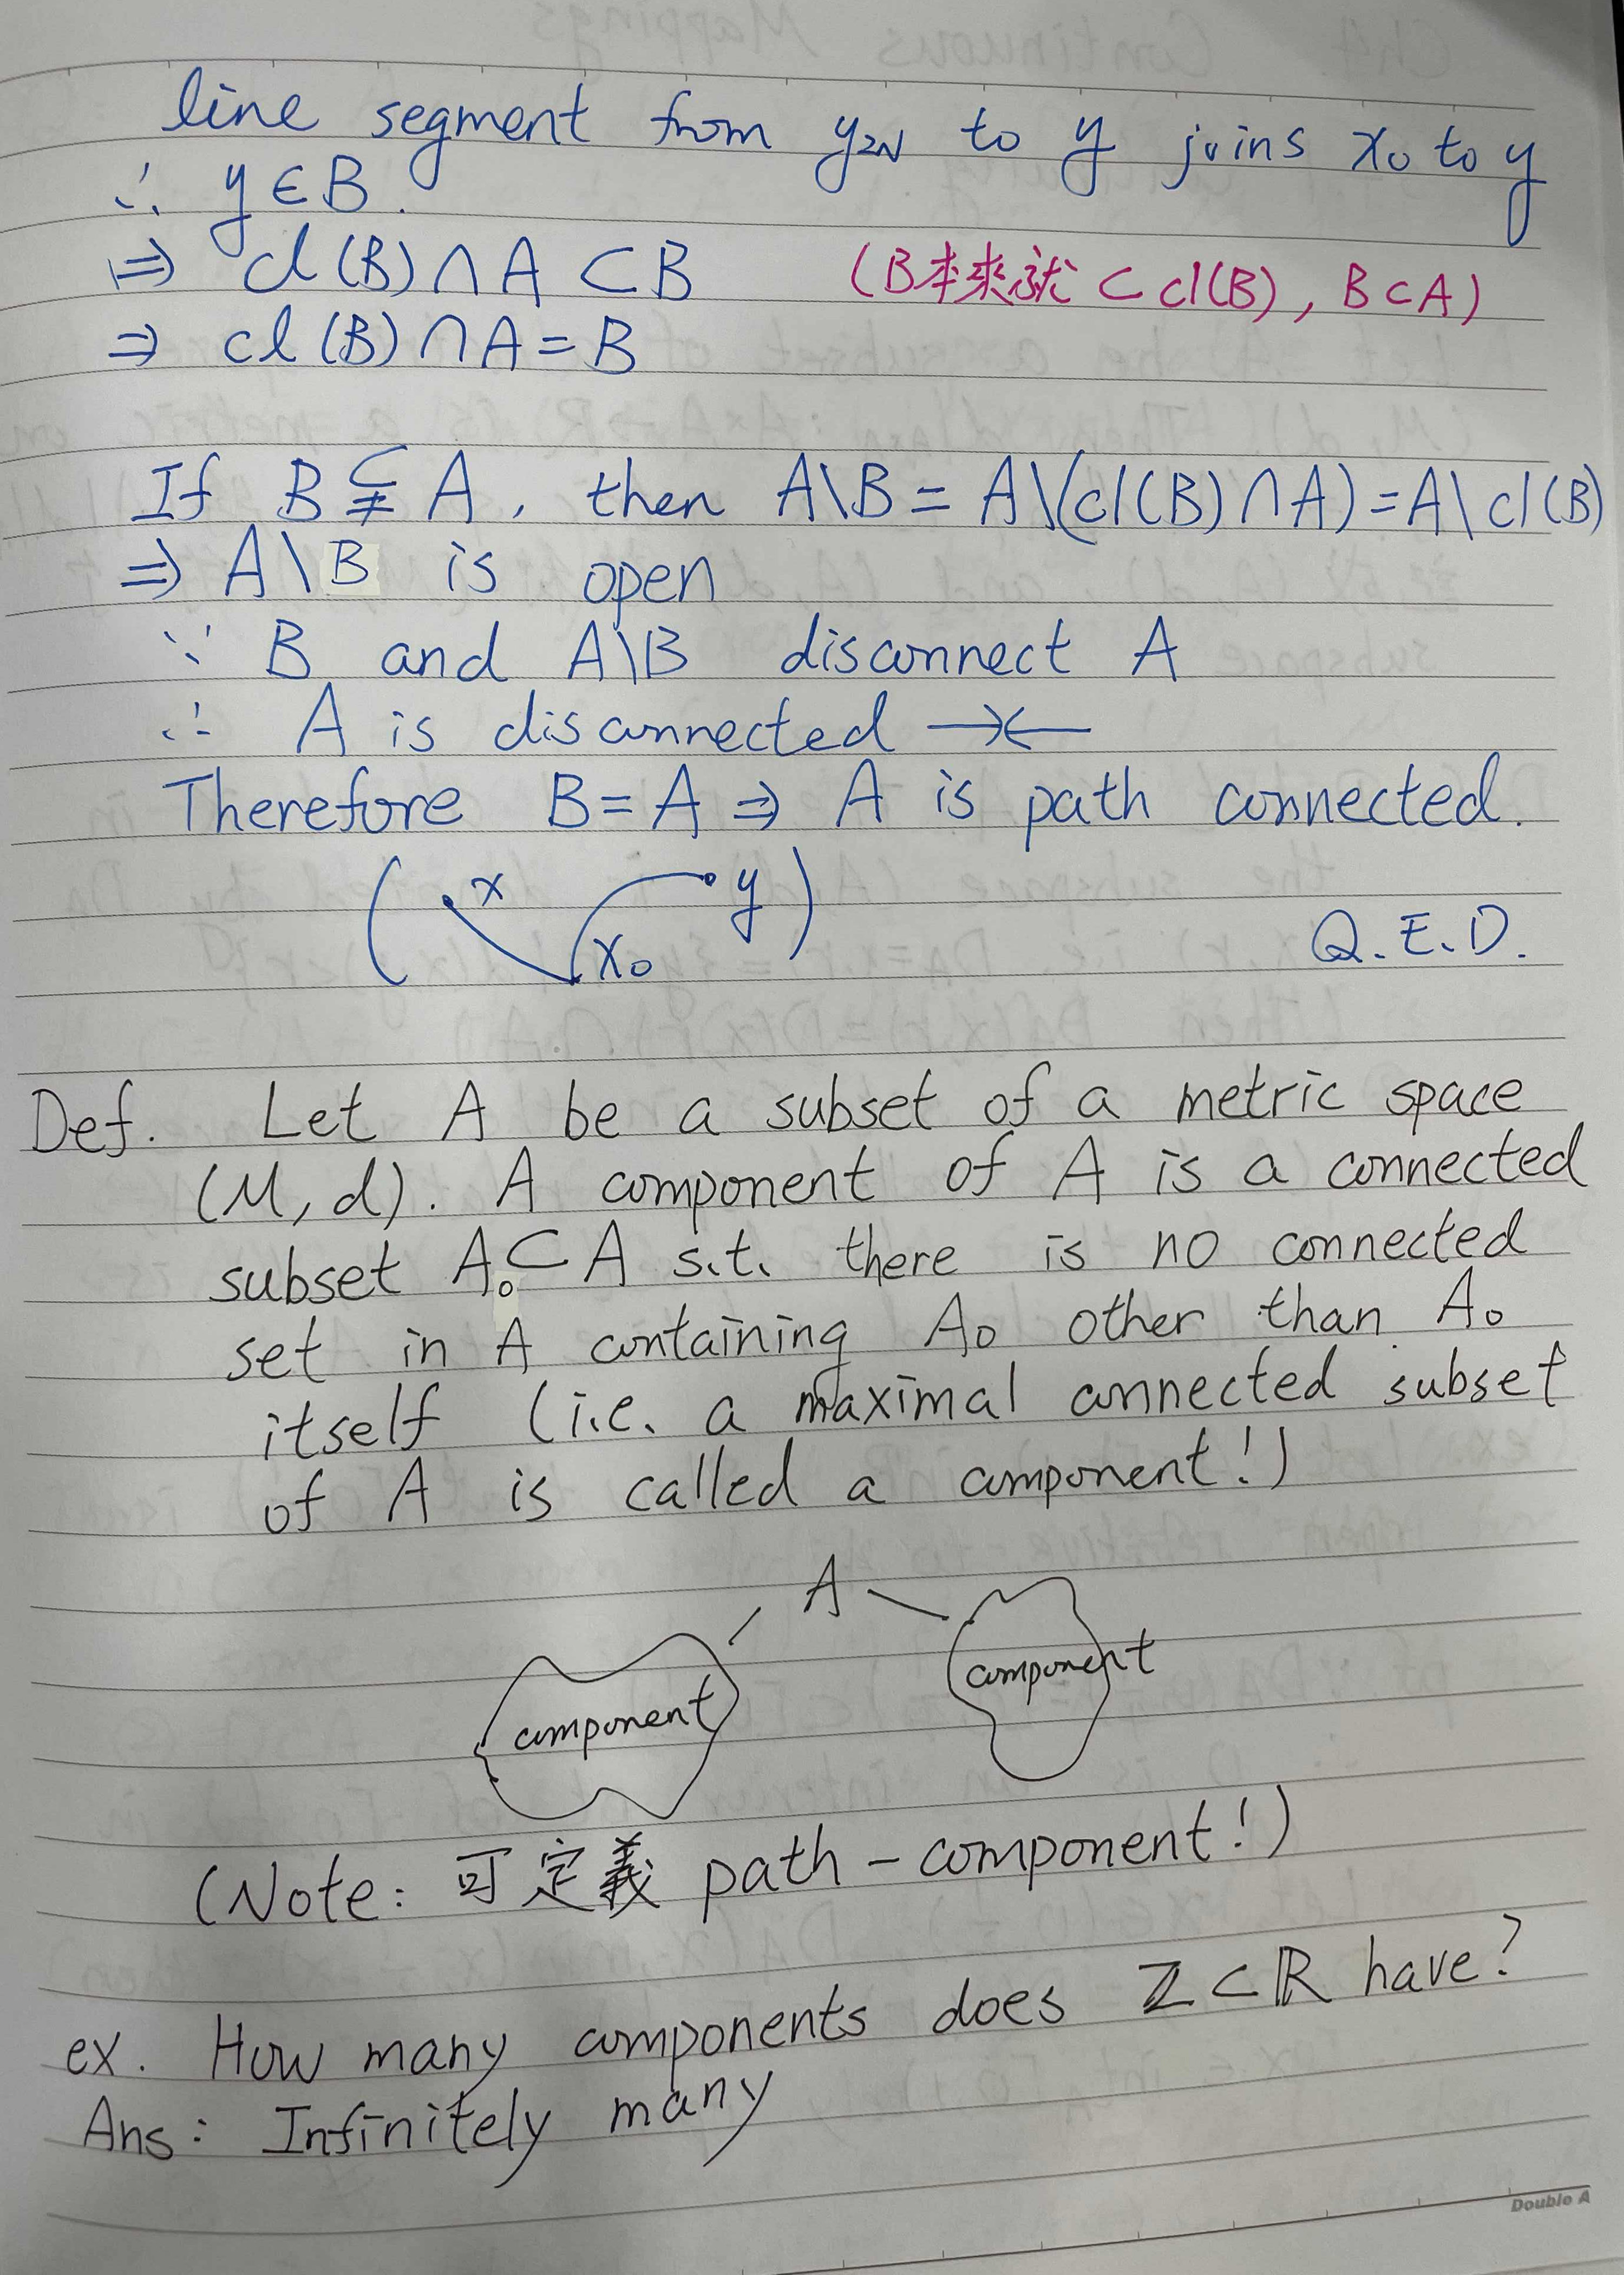 line segment from y₂N to y joins x₀ to y
∴ y∈B.
⇒ cl(B)∩A⊂B (B本來就⊂cl(B), B⊂A)
⇒ cl(B)∩A=B
If B⊊A, then A\B = A\(cl(B)∩A)=A\cl(B)
⇒ A\B is open
∵ B and A\B disconnect A
∴ A is disconnected →←
Therefore B=A ⇒ A is path connected.
( x x₀ y )
Q.E.D.
Def. Let A be a subset of a metric space
(M,d). A component of A is a connected
subset A₀⊂A s.t. there is no connected
set in A containing A₀ other than A₀
itself (i.e. a maximal connected subset
of A is called a component!)
A
component
component
(Note: 可定義 path-component!)
ex. How many components does ℤ⊂ℝ have?
Ans: Infinitely many
Double A